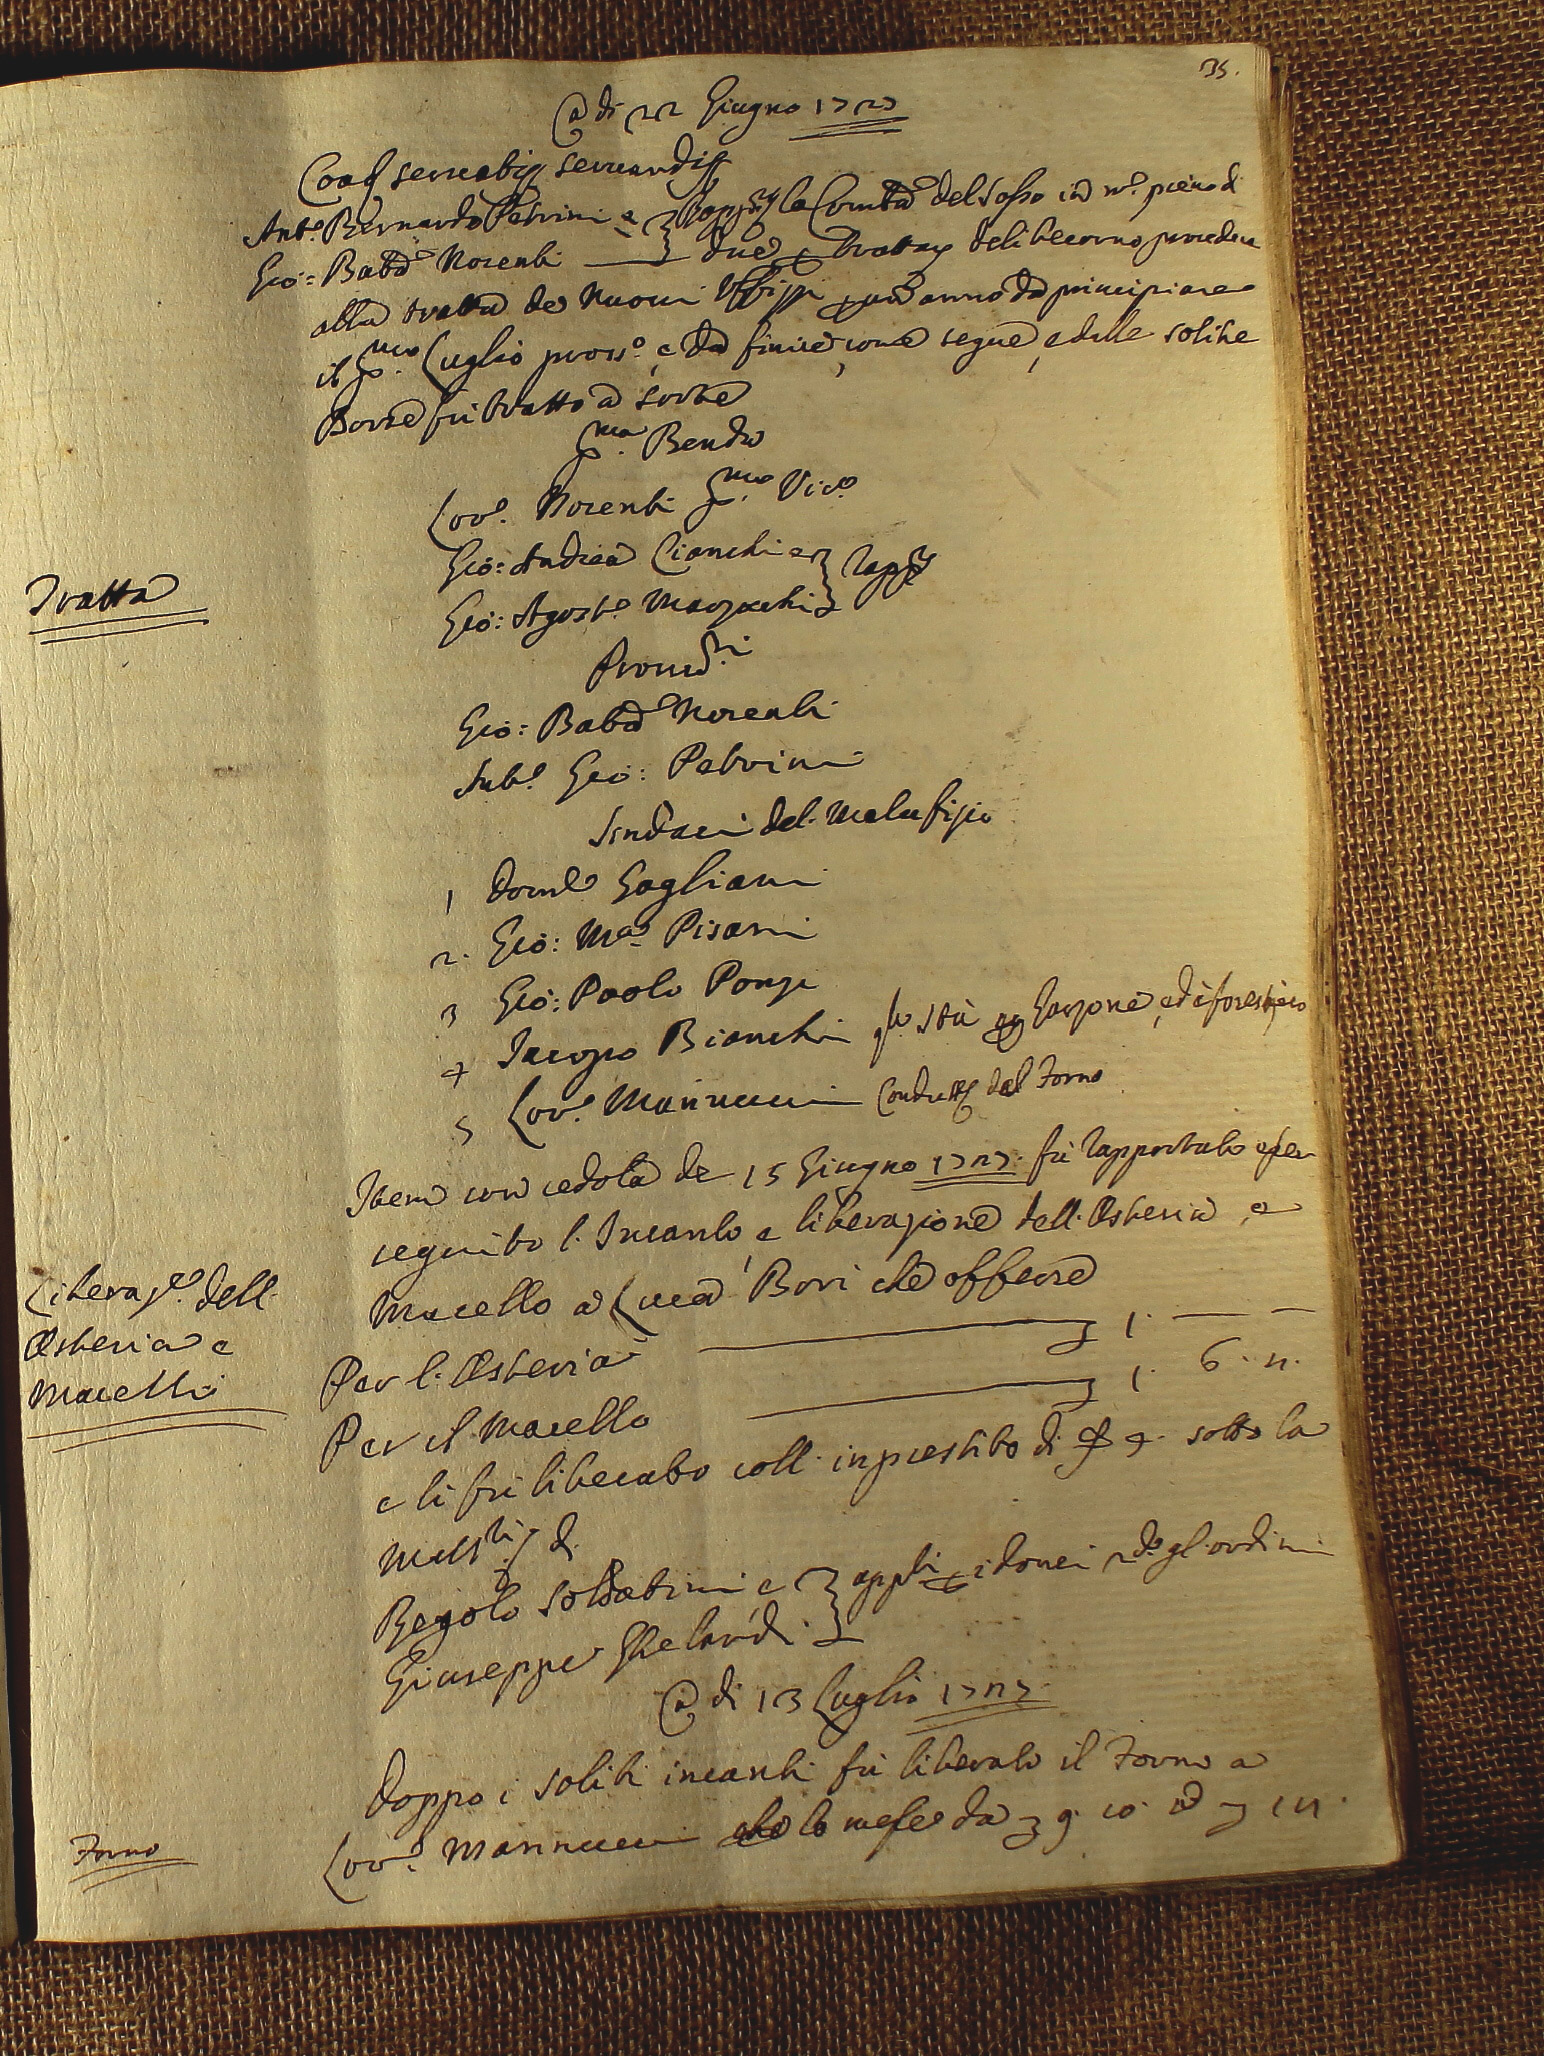 35.
@ di 22 Giugno 1727
Coad servatis servandis
Ant.o Bernardo Petrini e
Gio: Batta Norenti
Rapp.ti la Comtà del Sasso in n.o pieno di
due per Trattar deliberorno proceder
alla tratta de Nuovi Uffizi per un anno da principiare
il p.mo Luglio pross.o, e da finire, come segue, e dalle solite
Borse fù tratto a sorte
p.ma Benda
Lov.o Norenti p.mo Vic.o
Gio: Andrea Cianchi e
Gio: Agost.o Mazzuchi
Rapp.ti
Proved.ri
Gio: Batta Norenti
Ant.o Gio: Petrini
Sindaci del Malefizio
1 Dom.co Gagliani
2. Gio: M.a Pisani
3 Gio: Paolo Ponzi
4 Jacopo Bianchi q.lo stà per Garzone, ed è forestiero
5 Lov.o Mannucci Condutt.e del Forno
Tratta
Item con cedola de 15 Giugno 1727. fù rapportato esser
seguito l'Incanto, e liberazione dell'Osteria, e
Macello a Luca Bovi che offerse
Per l'Osteria 1. — —
Per il Macello 1. 6. 11.
e li fù liberato coll'inprestito di 4. sotto la
di
Regolo Soldatini e
Giuseppe Ghelardi
app.ti per idonei s.do gl'ordini
Liberaz.e dell'
Osteria e
Macello
@ di 13 Luglio 1727.
Doppo i soliti incanti fù liberato il Forno a
Lov.o Mannucci che lo messe da 9. 10 a 11.
Forno